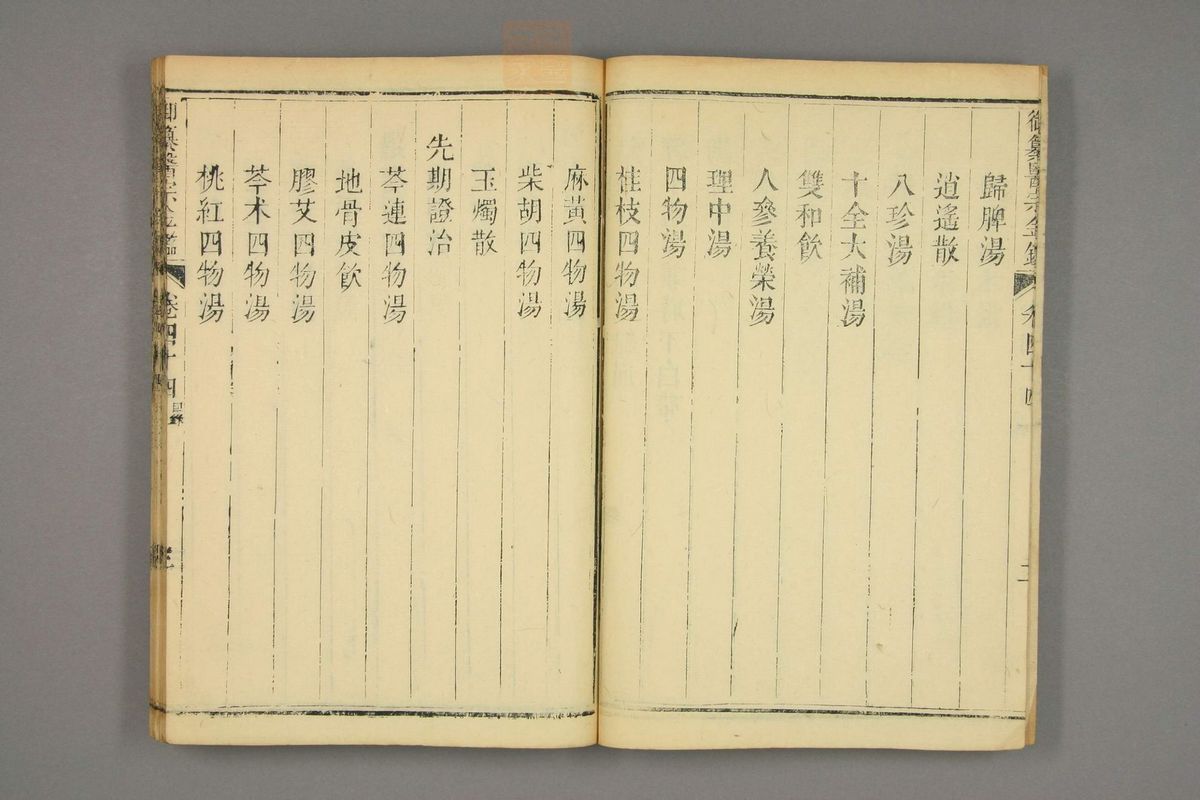 歸脾湯
逍遙散
八珍湯
十全大補湯
雙和飲
人參養榮湯
理中湯
四物湯
桂枝四物湯
麻黃四物湯
柴胡四物湯
玉燭散
先期證治
芩連四物湯
地骨皮飲
膠艾四物湯
芩术四物湯
桃紅四物湯
御纂醫宗金鑑
卷四十四
目錄
三